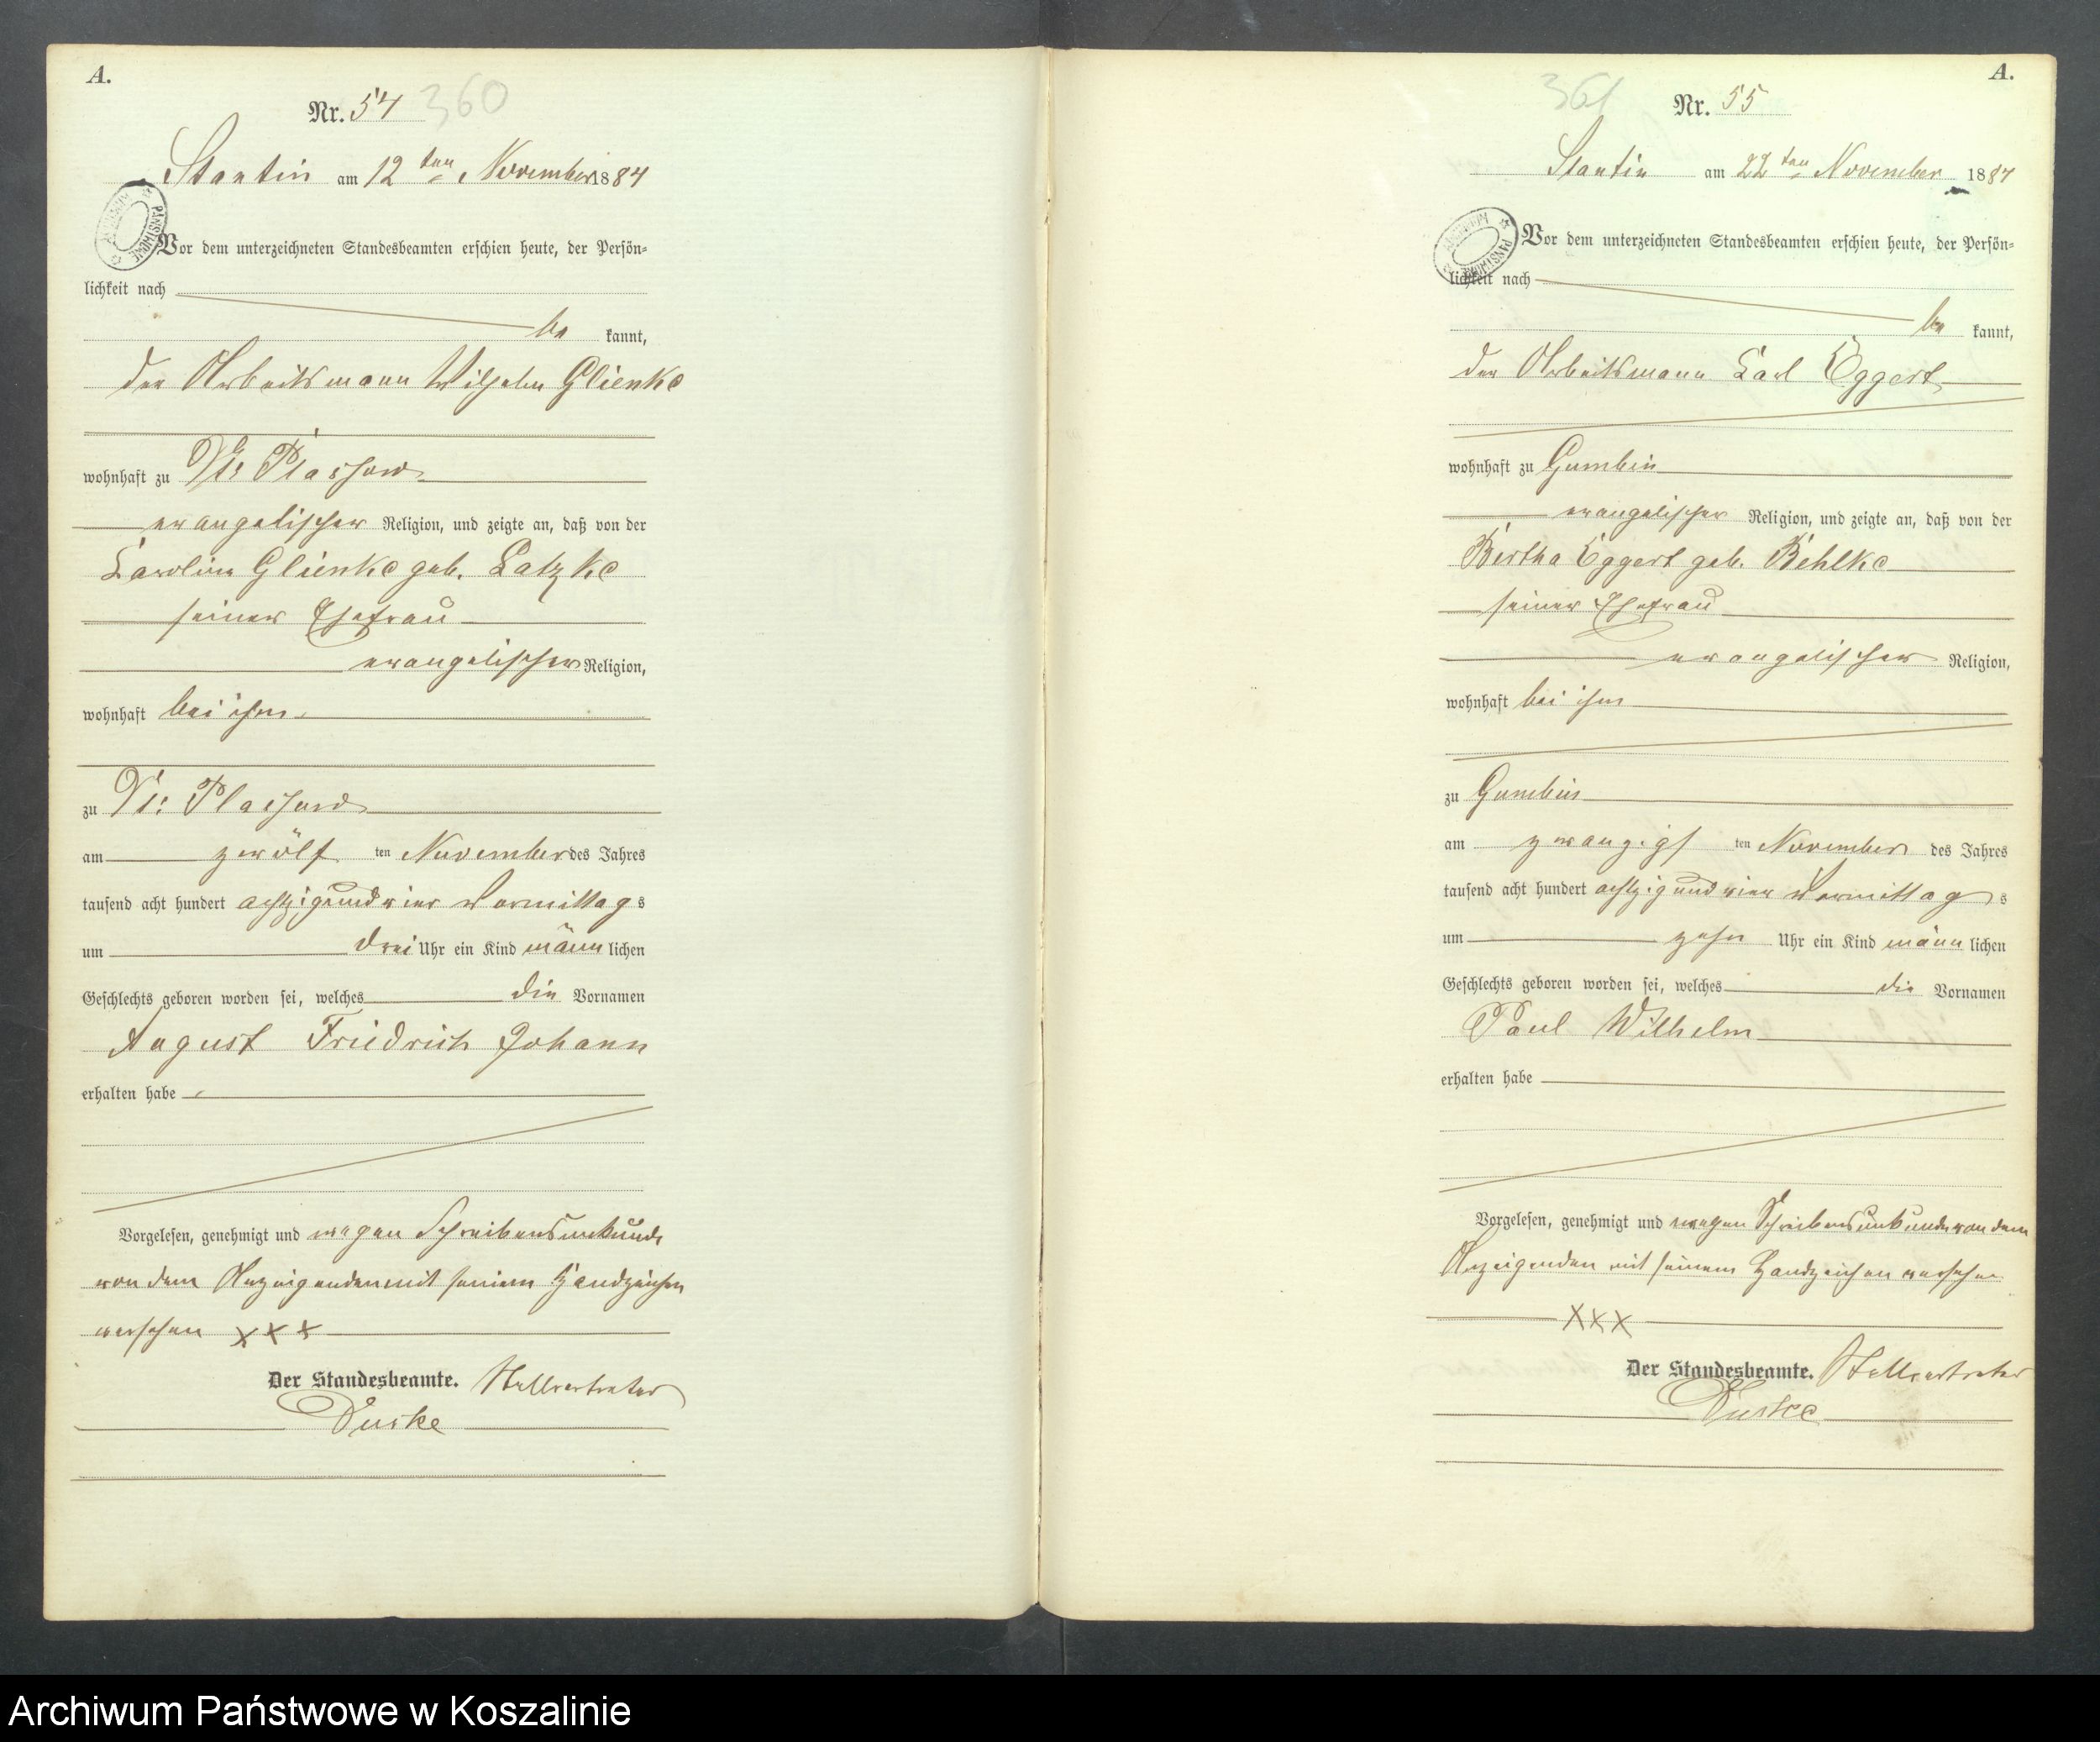 A.
Nr. 54 360
Stantin am 12 ten November 1884
Vor dem unterzeichneten Standesbeamten erschien heute, der Persön-
lichkeit nach
be kannt,
der Arbeitsmann Wilhelm Glienke
wohnhaft zu Plassow
evangelischer Religion, und zeigte an, daß von der
Caroline Glienke geb. Latzke
seiner Ehefrau
evangelischer Religion,
wohnhaft bei ihm
zu Plassow
am zwölf ten November des Jahres
tausend acht hundert achtzig und vier Vormittag s
um drei Uhr ein Kind männ lichen
Geschlechts geboren worden sei, welches die Vornamen
August Friedrich Johann
erhalten habe
Vorgelesen, genehmigt und wegen Schreibensunkunde
von dem Anzeigenden mit seinem Handzeichen
versehen XXX
Der Standesbeamte. Stellvertreter
Duske
A.
361 Nr. 55
Stantin am 22 ten November 1884
Vor dem unterzeichneten Standesbeamten erschien heute, der Persön-
lichkeit nach
be kannt,
der Arbeitsmann Carl Eggert
wohnhaft zu Gumbin
evangelischer Religion, und zeigte an, daß von der
Bertha Eggert geb. Behlke
seiner Ehefrau
evangelischer Religion,
wohnhaft bei ihm
zu Gumbin
am zwanzigst ten November des Jahres
tausend acht hundert achtzig und vier Vormittag s
um zehn Uhr ein Kind männ lichen
Geschlechts geboren worden sei, welches die Vornamen
Paul Wilhelm
erhalten habe
Vorgelesen, genehmigt und wegen Schreibensunkunde von dem
Anzeigenden mit seinem Handzeichen versehen
XXX
Der Standesbeamte. Stellvertreter
Duske
Archiwum Państwowe w Koszalinie